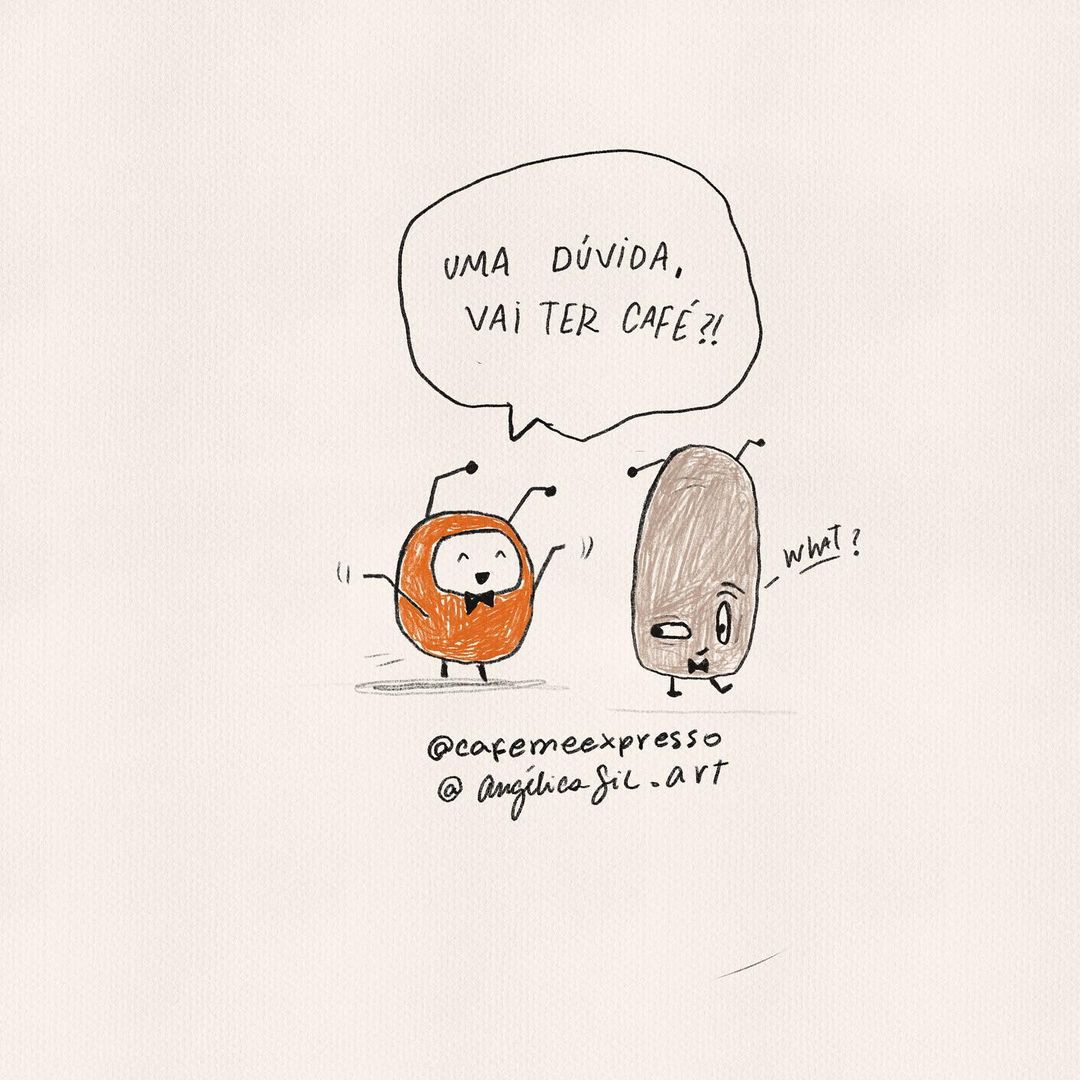 UMA DÚVIDA,
VAI TER CAFÉ?!
WHAT?
@cafemeexpresso
@angélicagil.art